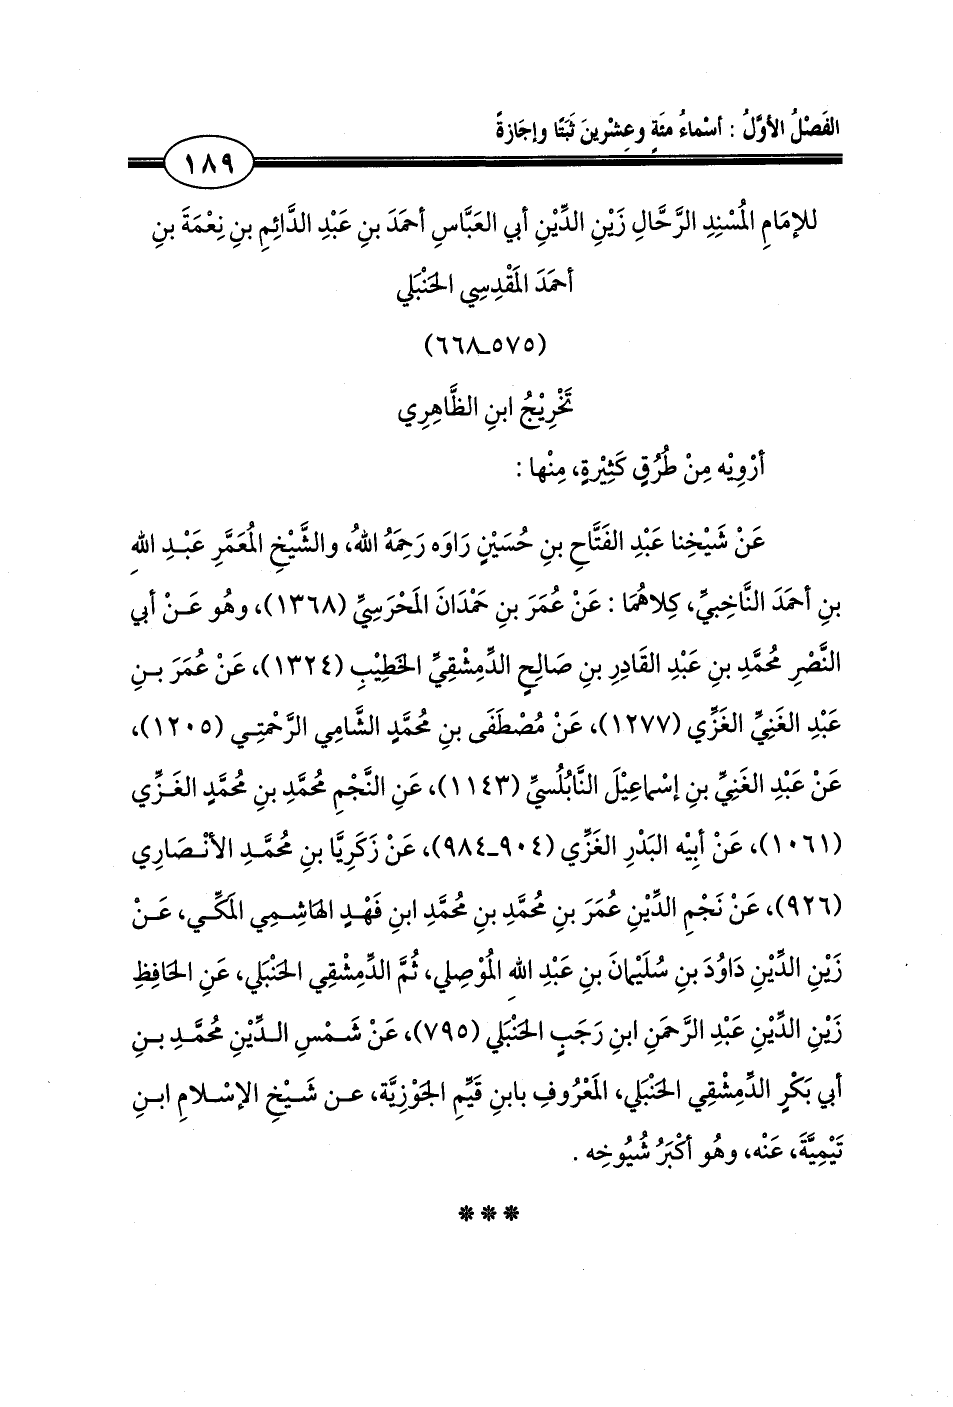 الفَصْلُ الأوَّلُ : أسْماءُ مئَةٍ وعِشْرينَ ثَبَتًا وإجَازةً
١٨٩
للإمَامِ المُسْنِدِ الرَّحَّالِ زَيْنِ الدِّيْنِ أبي العَبَّاسِ أحمَدَ بنِ عَبْدِ الدَّائِمِ بنِ نِعْمَةَ بنِ
أحمَدَ المَقْدِسِي الحَنْبَلي
(٥٧٥ـ٦٦٨)
تَخْرِيْجُ ابنِ الظَّاهِرِي
أرْوِيْه مِنْ طُرُقٍ كَثِيْرةٍ، مِنْها :
عَنْ شَيْخِنا عَبْدِ الفَتَّاحِ بنِ حُسَيْنٍ رَاوَه رَحِمَهُ اللهُ، والشَّيْخِ المُعَمَّرِ عَبْدِ اللهِ
بنِ أحمَدَ النَّاخِبيِّ، كِلاهُمَا : عَنْ عُمَرَ بنِ حَمْدَانَ المَحْرَسِيِّ (١٣٦٨)، وهُو عَنْ أبي
النَّصْرِ مُحمَّدِ بنِ عَبْدِ القَادِرِ بنِ صَالِحٍ الدِّمِشْقِيِّ الخَطِيْبِ (١٣٢٤)، عَنْ عُمَرَ بنِ
عَبْدِ الغَنِيِّ الغَزِّي (١٢٧٧)، عَنْ مُصْطَفَى بنِ مُحمَّدٍ الشَّامِي الرَّحْمتِي (١٢٠٥)،
عَنْ عَبْدِ الغَنِيِّ بنِ إسْماعِيْلَ النَّابُلْسيِّ (١١٤٣)، عَنِ النَّجْمِ مُحمَّدِ بنِ مُحمَّدٍ الغَزِّي
(١٠٦١)، عَنْ أبِيْه البَدْرِ الغَزِّي (٩٠٤ـ٩٨٤)، عَنْ زَكَرِيَّا بنِ مُحمَّدٍ الأنْصَارِي
(٩٢٦)، عَنْ نَجْمِ الدِّيْنِ عُمَرَ بنِ مُحمَّدِ بنِ مُحمَّدِ ابنِ فَهْدٍ الهَاشِمِي المَكِّي، عَنْ
زَيْنِ الدِّيْنِ دَاوُدَ بنِ سُلَيْمانَ بنِ عَبْدِ اللهِ المُوْصِلي، ثُمَّ الدِّمِشْقِي الحَنْبَلي، عَنِ الحَافِظِ
زَيْنِ الدِّيْنِ عَبْدِ الرَّحمَنِ ابنِ رَجَبٍ الحَنْبَلي (٧٩٥)، عَنْ شَمْسِ الدِّيْنِ مُحمَّدِ بنِ
أبي بَكْرٍ الدِّمِشْقِي الحَنْبَلي، المَعْرُوفِ بابنِ قَيِّمِ الجَوْزِيَّةِ، عن شَيْخِ الإسْلامِ ابنِ
تَيْمِيَّةَ، عَنْه، وهُو أكْبَرُ شُيُوخِه .
***